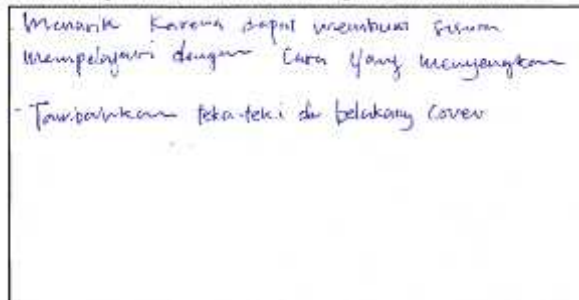 Menarik karena dapat membuat siswa
mempelajari dengan cara yang menyengkan
- Tambahkan teka-teki di belakang cover